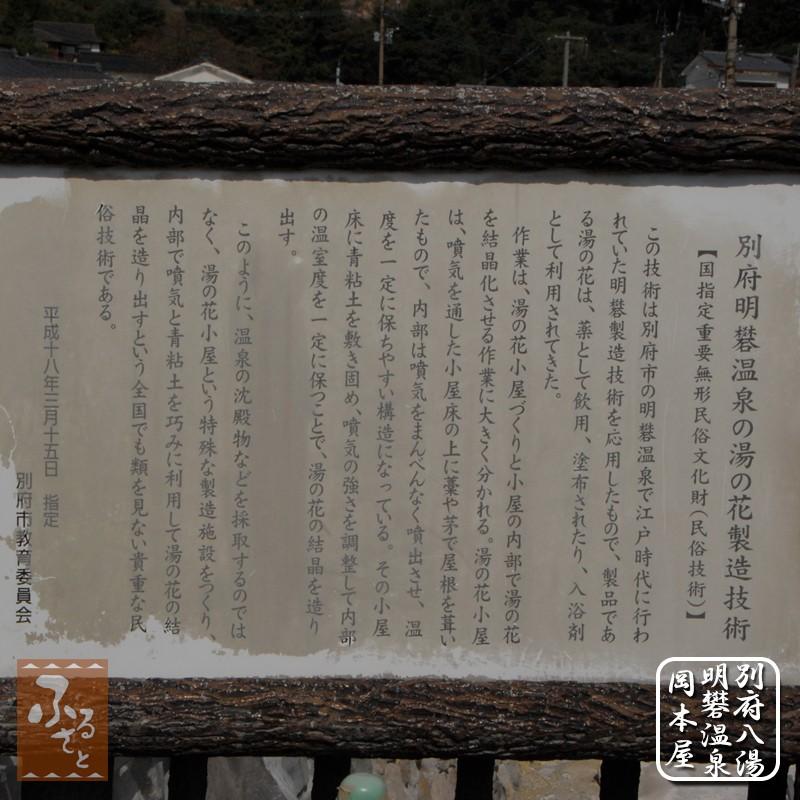 別府明礬温泉の湯の花製造技術
【国指定重要無形民俗文化財(民俗技術)】
この技術は別府市の明礬温泉で江戸時代に行わ
れていた明礬製造技術を応用したもので、製品であ
る湯の花は、薬として飲用、塗布されたり、入浴剤
として利用されてきた。
作業は、湯の花小屋づくりと小屋の内部で湯の花
を結晶化させる作業に大きく分かれる。湯の花小屋
は、噴気を通した小屋床の上に藁や茅で屋根を葺い
たもので、内部は噴気をまんべんなく噴出させ、温
度を一定に保ちやすい構造になっている。その小屋
床に青粘土を敷き固め、噴気の強さを調整して内部
の温室度を一定に保つことで、湯の花の結晶を造り
出す。
このように、温泉の沈殿物などを採取するのでは
なく、湯の花小屋という特殊な製造施設をつくり、
内部で噴気と青粘土を巧みに利用して湯の花の結
晶を造り出すという全国でも類を見ない貴重な民
俗技術である。
平成十八年三月十五日 指定
別府市教育委員会
ふるさと
別府八湯
明礬温泉
岡本屋